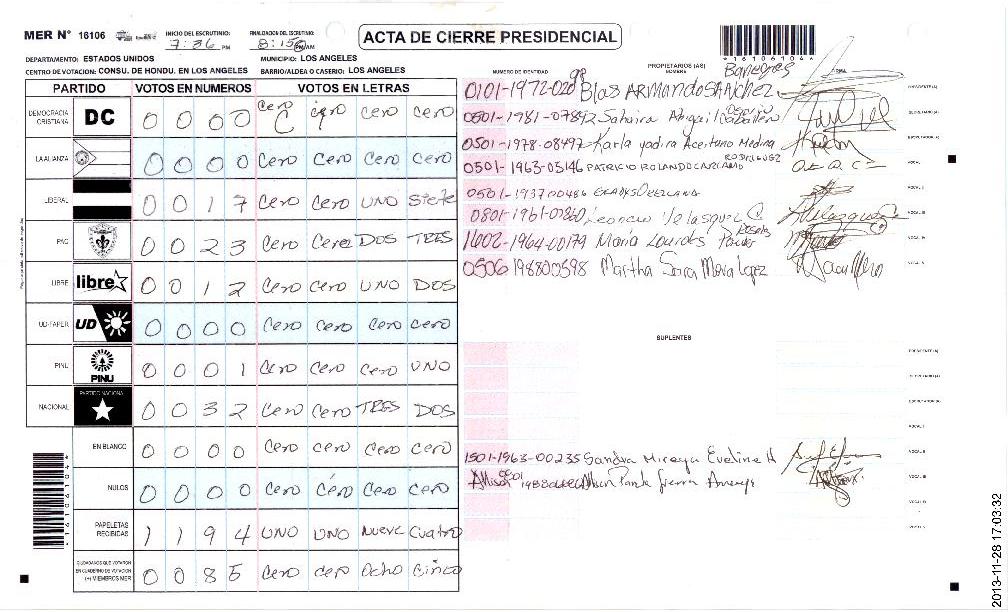 MER N° 16106 INICIO DEL ESCRUTINIO: 7:36 PM FINALIZACION DEL ESCRUTINIO: 8:15 PM/AM ACTA DE CIERRE PRESIDENCIAL
*16106104*
DEPARTAMENTO: ESTADOS UNIDOS MUNICIPIO: LOS ANGELES
CENTRO DE VOTACION: CONSU. DE HONDU. EN LOS ANGELES BARRIO/ALDEA O CASERIO: LOS ANGELES
NUMERO DE IDENTIDAD PROPIETARIOS (AS) NOMBRE FIRMA
PARTIDO VOTOS EN NUMEROS VOTOS EN LETRAS
DEMOCRACIA CRISTIANA DC 0 0 0 0 Cero Cero Cero Cero
LA ALIANZA 0 0 0 0 Cero Cero Cero Cero
LIBERAL 0 0 1 7 Cero Cero UNO Siete
PAC 0 0 2 3 Cero Cero DOS TRES
LIBRE libre 0 0 1 2 Cero Cero UNO DOS
UD-FAPER UD 0 0 0 0 Cero Cero Cero Cero
PINU PINU 0 0 0 1 Cero Cero Cero UNO
NACIONAL PARTIDO NACIONAL 0 0 3 2 Cero Cero TRES DOS
EN BLANCO 0 0 0 0 Cero Cero Cero Cero
NULOS 0 0 0 0 Cero Cero Cero Cero
PAPELETAS RECIBIDAS 1 1 9 4 UNO UNO Nueve Cuatro
CIUDADANOS QUE VOTARON EN CUADERNO DE VOTACION (+) MIEMBROS MER 0 0 8 5 Cero Cero Ocho Cinco
0101-1972-020 Blas ARMANDO SANCHEZ PRESIDENTE (A)
0801-1981-07892 Sahira Abigail SECRETARIO (A)
0501-1978-08497 Karla yadira Aceituno Medina ESCRUTADOR (A)
0501-1963-05146 PATRICIO ROLANDO RODRIGUEZ VOCAL I
0501-1937 00486 GLADYS VOCAL II
0801-1961-00860 Leoncio Velasquez C VOCAL III
1602-1964-00179 Maria Lourdes VOCAL IV
0506 198800598 Martha Sara Mora Lopez VOCAL V
SUPLENTES
PRESIDENTE (A)
SECRETARIO (A)
ESCRUTADOR (A)
VOCAL I
1501-1963-00235 Sandra Mireya Eveline H VOCAL II
VOCAL III
VOCAL IV
VOCAL V
*16106104*
2013-11-28 17:03:32